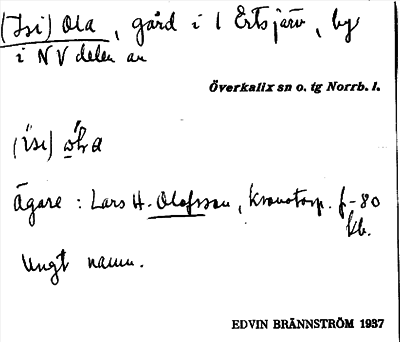 (Isi) Ola, gård i l Ertsjärv, by
i NV delen av
Överkalix sn o. tg Norrb. l.
Ägare: Lars H. Olofsson, kronotorp. f-80
kb.
Ungt namn.
EDVIN BRÄNNSTRÖM 1937